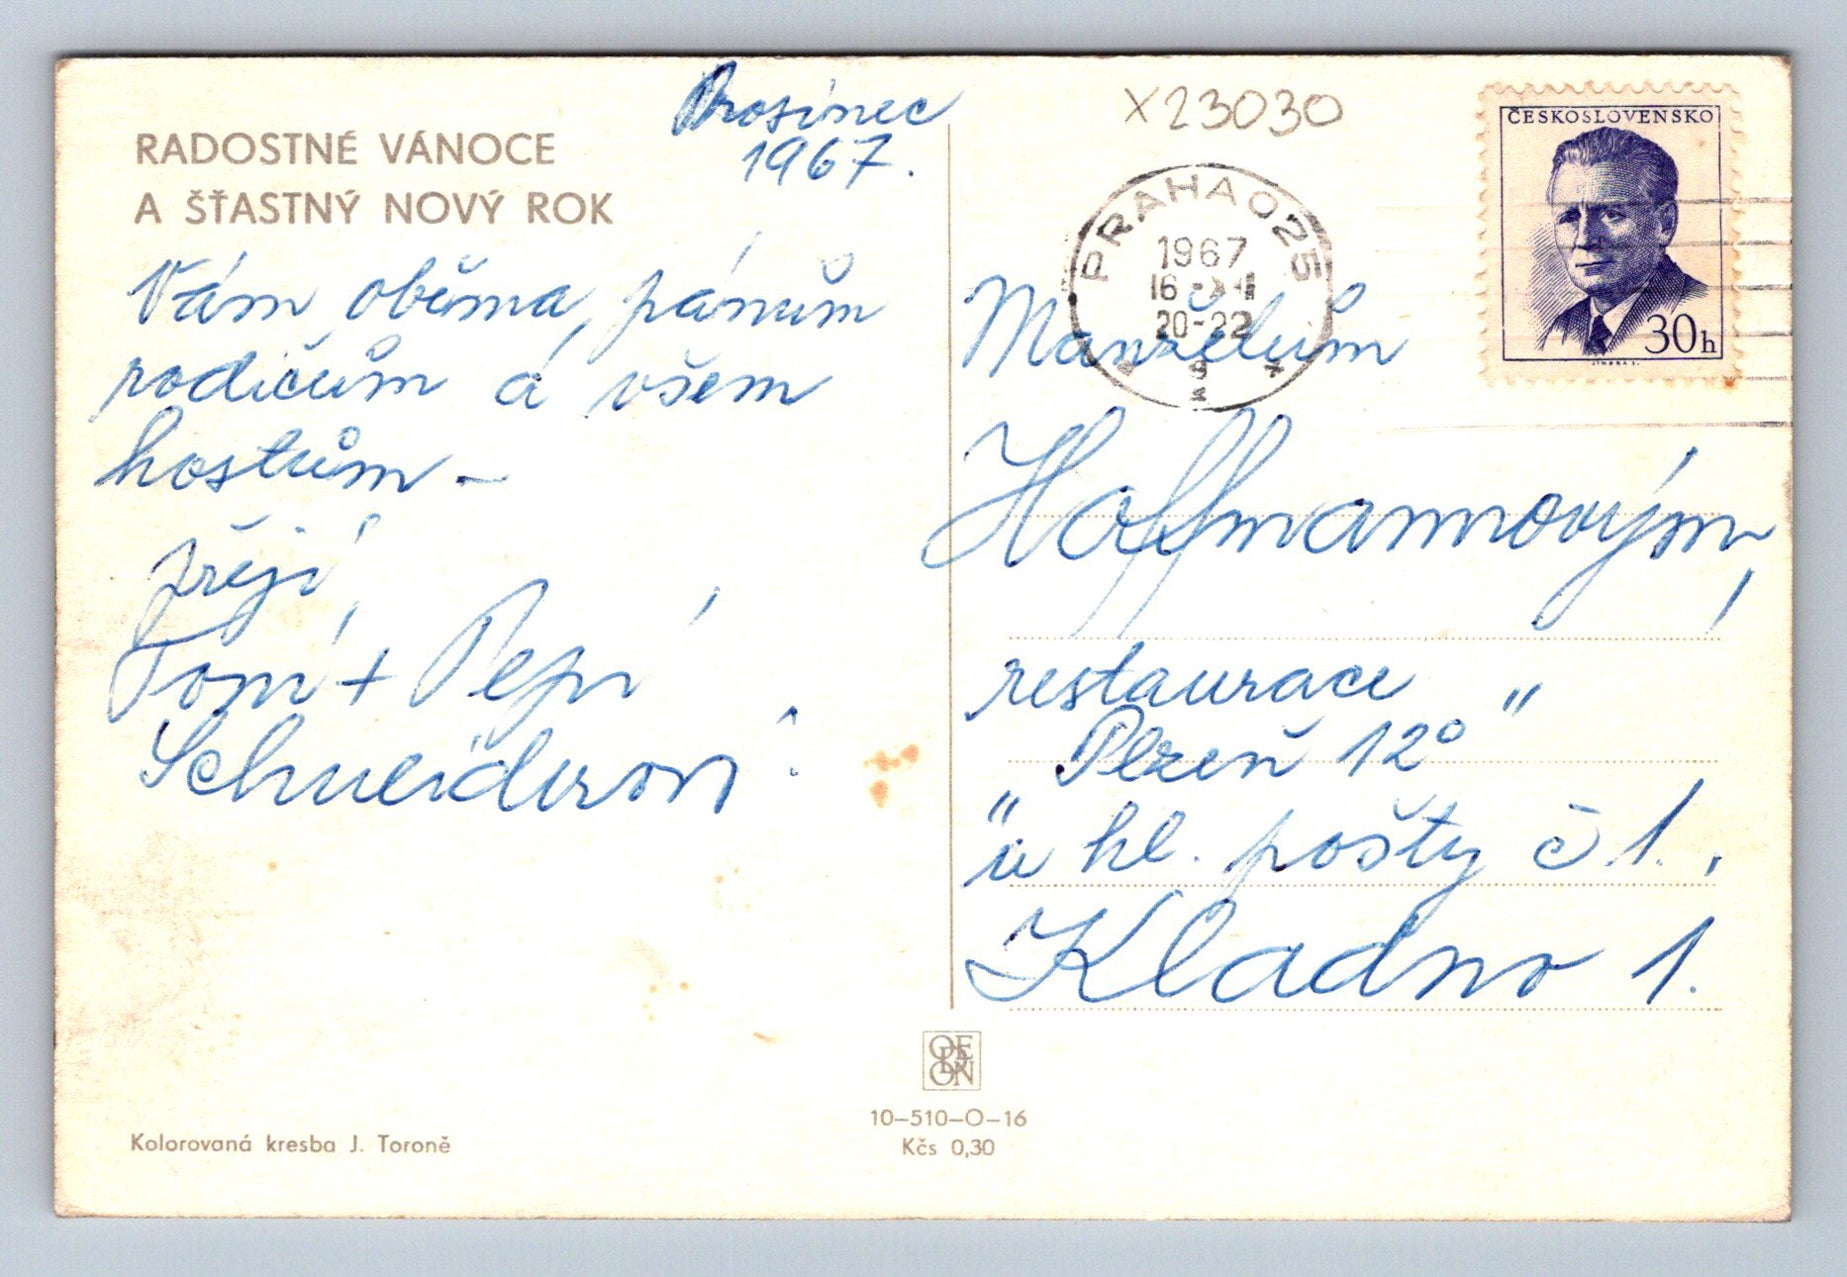 Prosinec
1967.
RADOSTNÉ VÁNOCE
A ŠŤASTNÝ NOVÝ ROK
Vám oběma, pánům
rodičům a všem
hostům –
přejí
Toní + Pepí
Schneiderovi
X23030
ČESKOSLOVENSKO
30h
PRAHA 025
1967
16.XII
20-22
Manželům
Hoffmannovým,
restaurace "
Plzeň 12°
"u hl. pošty č 1.,
Kladno 1.
ODEON
10–510–O–16
Kčs 0,30
Kolorovaná kresba J. Toroně